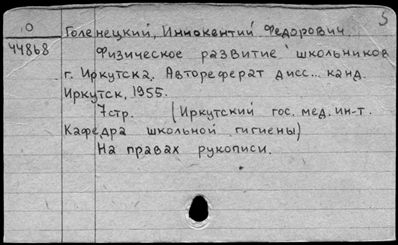 5
О
Голенецкий, Иннокентий Федорович.
44868
Физическое развитие школьников
г. Иркутска, Автореферат дисс... канд.
Иркутск, 1955.
7стр. (Иркутский гос. мед. ин-т.
Кафедра школьной гигиены)
На правах рукописи.